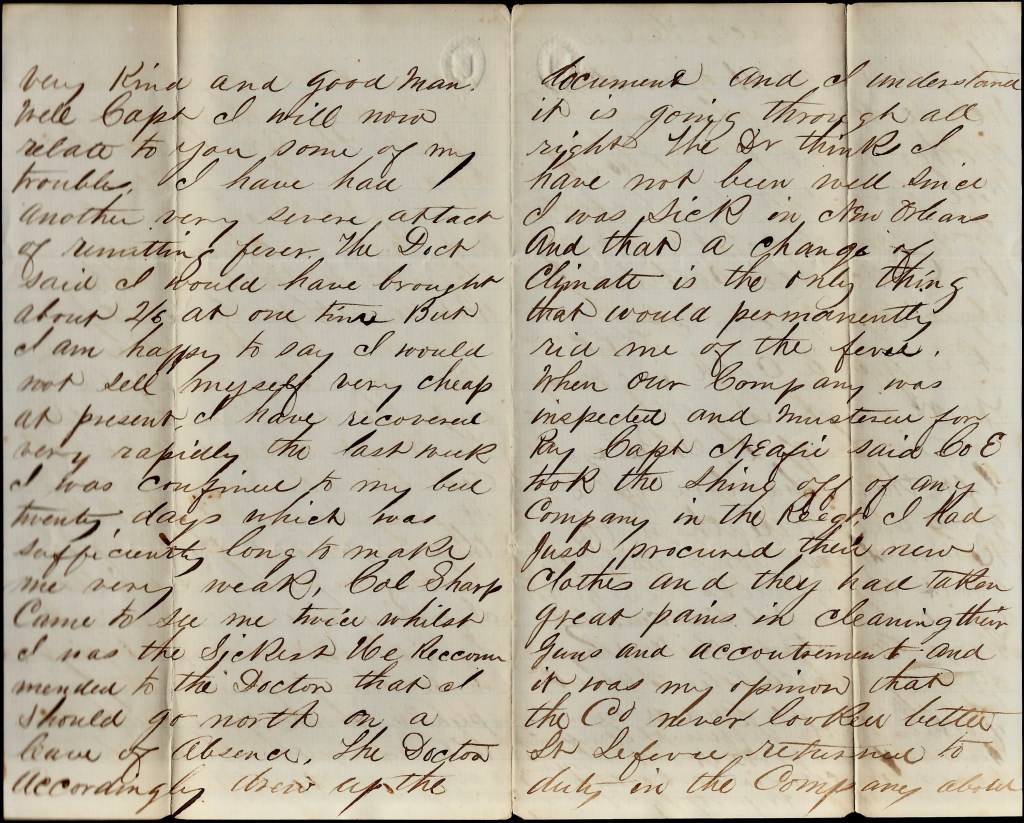 very Kind and good man.
Well Capt I will now
relate to you some of my
troubles. I have had
another very severe attact
of remitting fever. The Doct
said I would have brought
about 2/6 at one time But
I am happy to say I would
not sell myself very cheap
at present, I have recovered
very rapidly the last week
I was confined to my bed
twenty days which was
sufficiently long to make
me very weak, Col Sharp
Came to see me twice whilst
I was the Sickest He Reccom
mended to the Doctor that I
Should go north on a
leave of Absence, The Doctor
accordingly drew up the
document And I understand
it is going through all
right The Dr thinks I
have not been well since
I was Sick in New Orleans
And that a change of
Climate is the only thing
that would permanently
rid me of the fever.
When our Company was
inspected and Mustered for
Pay Capt said Co E
took the Shine off of any
Company in the Regt, I Had
Just procured their new
Clothes and they had taken
great pains in cleaning their
Guns and accoutrement and
it was my opinion that
the Co never looked better
Lt Lefevre returned to
duty in the Company about